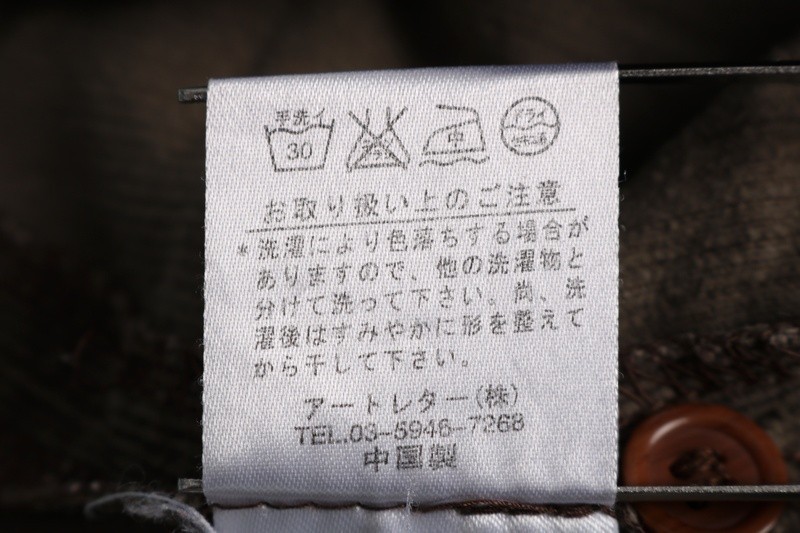 手洗イ
30 エンソ サラシ 中 ドライ
お取り扱い上のご注意
*洗濯により色落ちする場合が
ありますので、他の洗濯物と
分けて洗って下さい。尚、洗
濯後はすみやかに形を整えて
から干して下さい。
アートレター(株)
TEL.03-5946-7268
中国製